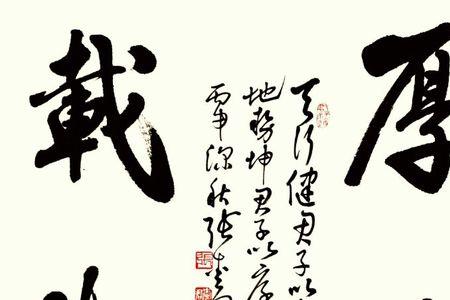 厚
天行健君子以
地势坤君子以厚
丙申深秋张
載